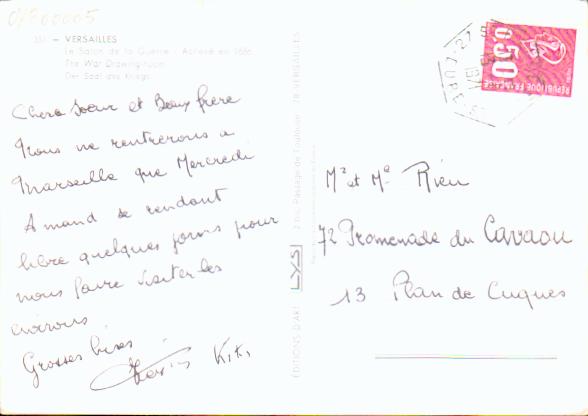 01/800005
351 — VERSAILLES
Le Salon de la Guerre - Achevé en 1686
The War Drawing-room
Der Saal des Kriegs
Chere Soeur et Beau frère
Nous ne rentrerons a
Marseille que Mercredi
Amand se rendant
libre quelques jours pour
nous faire visiter les
environs
Grosses bises
Kiki
ÉDITIONS D'ART LYS 2 bis, Passage de Toulouse - 78-VERSAILLES
0,50
REPUBLIQUE FRANÇAISE
Mr et Me Rieu
72 Promenade du Cavaou
13 Plan de Cuques